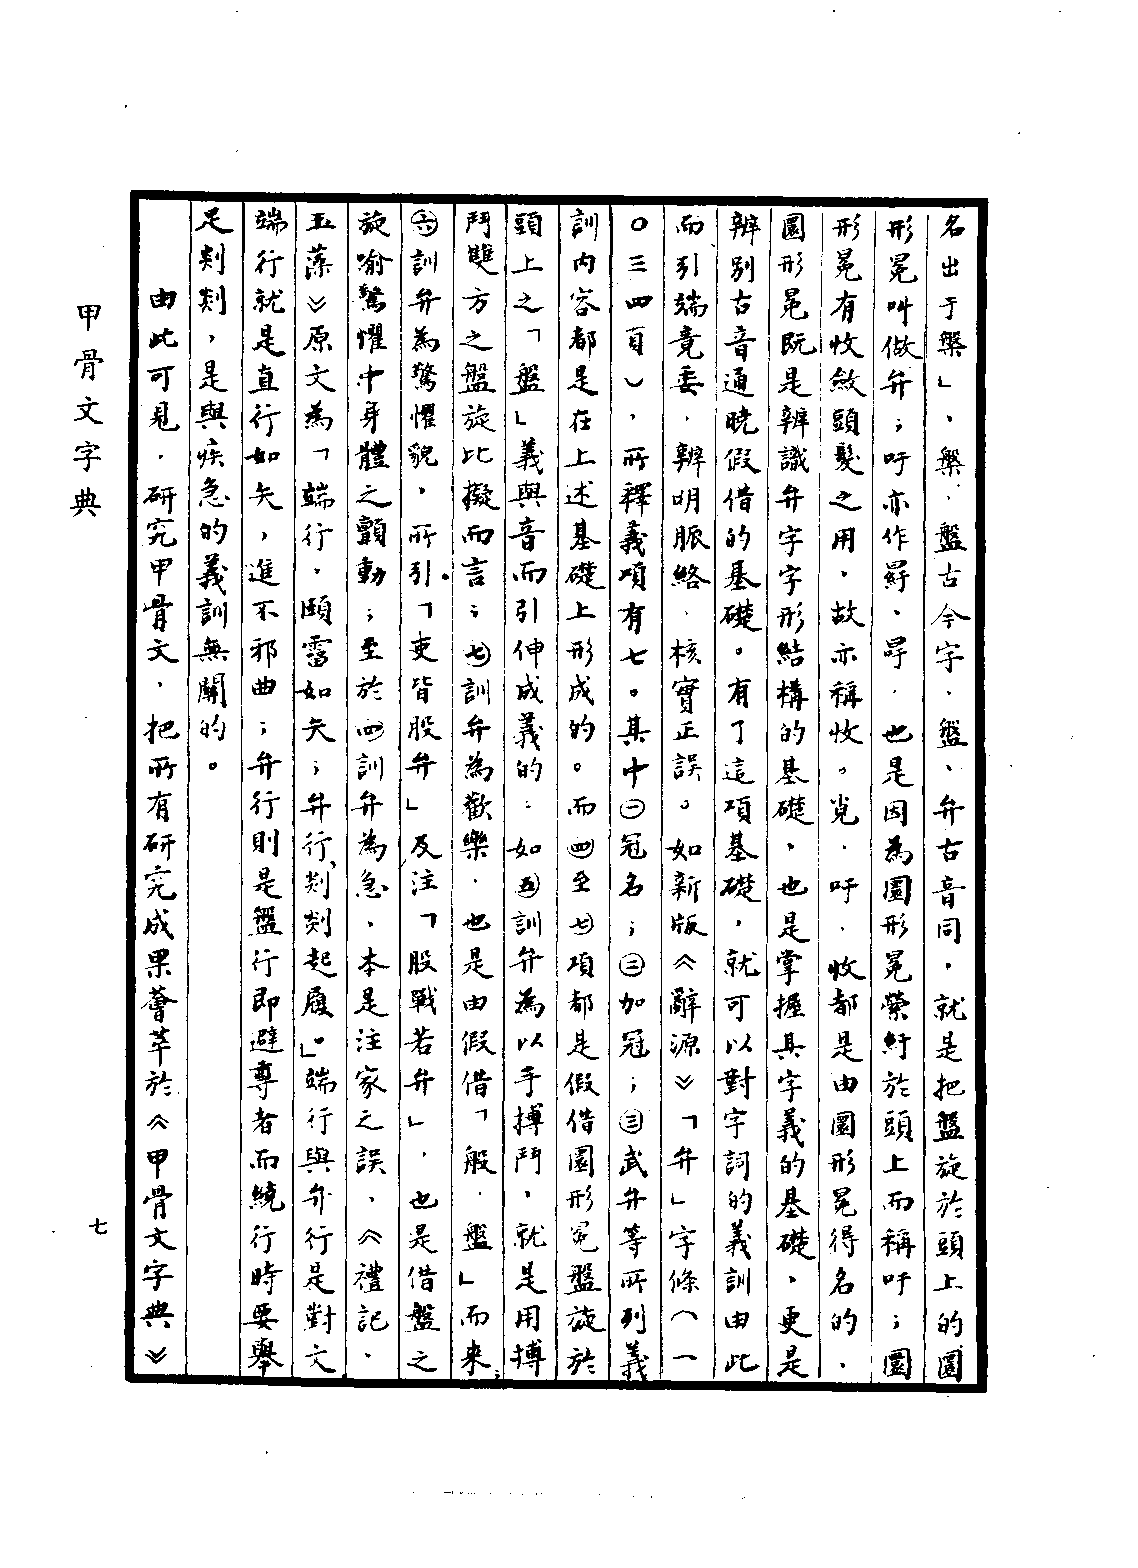 名出于槃」，槃、盤古今字，盤、弁古音同，就是把盤旋於頭上的圜
形冕叫做弁；吁亦作冔、㝵，也是因為圜形冕縈紆於頭上而稱吁；圜
形冕有收斂頭髮之用，故亦稱收。覍、吁、收都是由圜形冕得名的，
圜形冕既是辨識弁字字形結構的基礎，也是掌握其字義的基礎，更是
辨别古音通曉假借的基礎。有了這項基礎，就可以對字詞的義訓由此
而引端竟委，辨明脈絡，核實正誤。如新版《辭源》「弁」字條（一
〇三四頁），所釋義項有七。其中㊀冠名；㊁加冠；㊂武弁等所列義
訓内容都是在上述基礎上形成的。而㊃至㊆項都是假借圜形冕盤旋於
頭上之「盤」義與音而引伸成義的：如㊄訓弁為以手搏鬥，就是用搏
鬥雙方之盤旋比擬而言；㊆訓弁為歡樂，也是由假借「般、盤」而來；
㊅訓弁為驚懼貌，所引「吏皆股弁」及注「股戰若弁」，也是借盤之
旋喻驚懼中身體之顫動；至於㊃訓弁為急，本是注家之誤，《禮記·
玉藻》原文為「端行，頤霤如矢；弁行，剡剡起履。」端行與弁行是對文
端行就是直行如矢，進不邪曲；弁行則是盤行即避尊者而繞行時要舉
足剡剡，是與疾急的義訓無關的。
由此可見，研究甲骨文，把所有研究成果薈萃於《甲骨文字典》
甲骨文字典
七